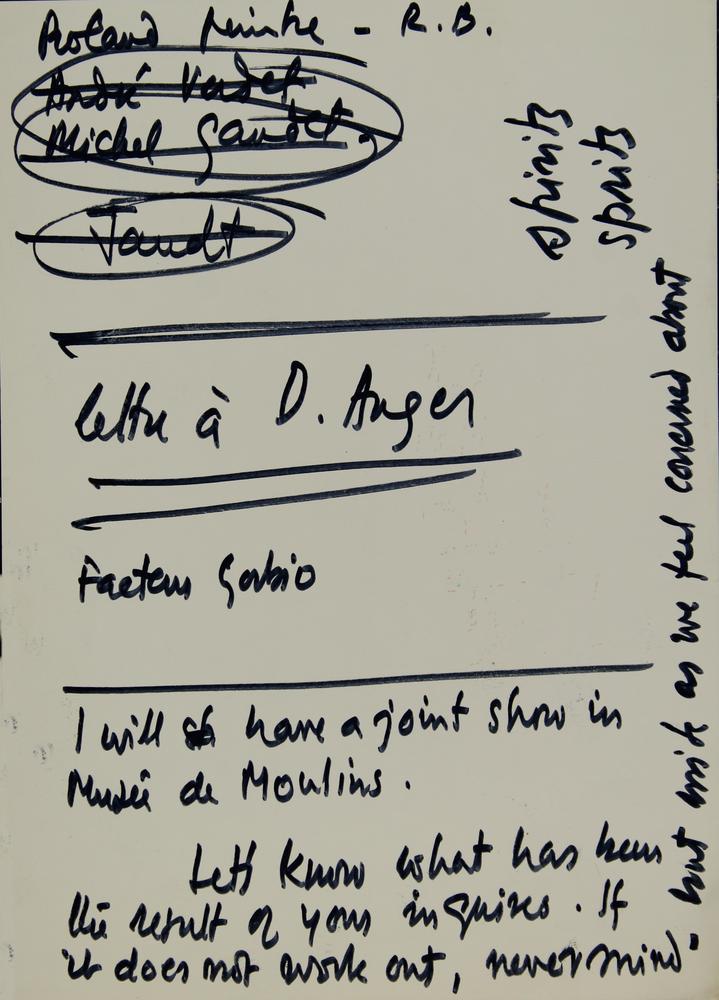 Roland - R.B.
André Verdet
Michel Gaudet.
Jaudt
lettre à D. Anger
Facteur Gorbio
I will have a joint show in
Musée de Moulins.
Let's know what has been
the result of your inquires. If
it does not work out, never mind -
but write as we feel concerned about
spirits
sprits